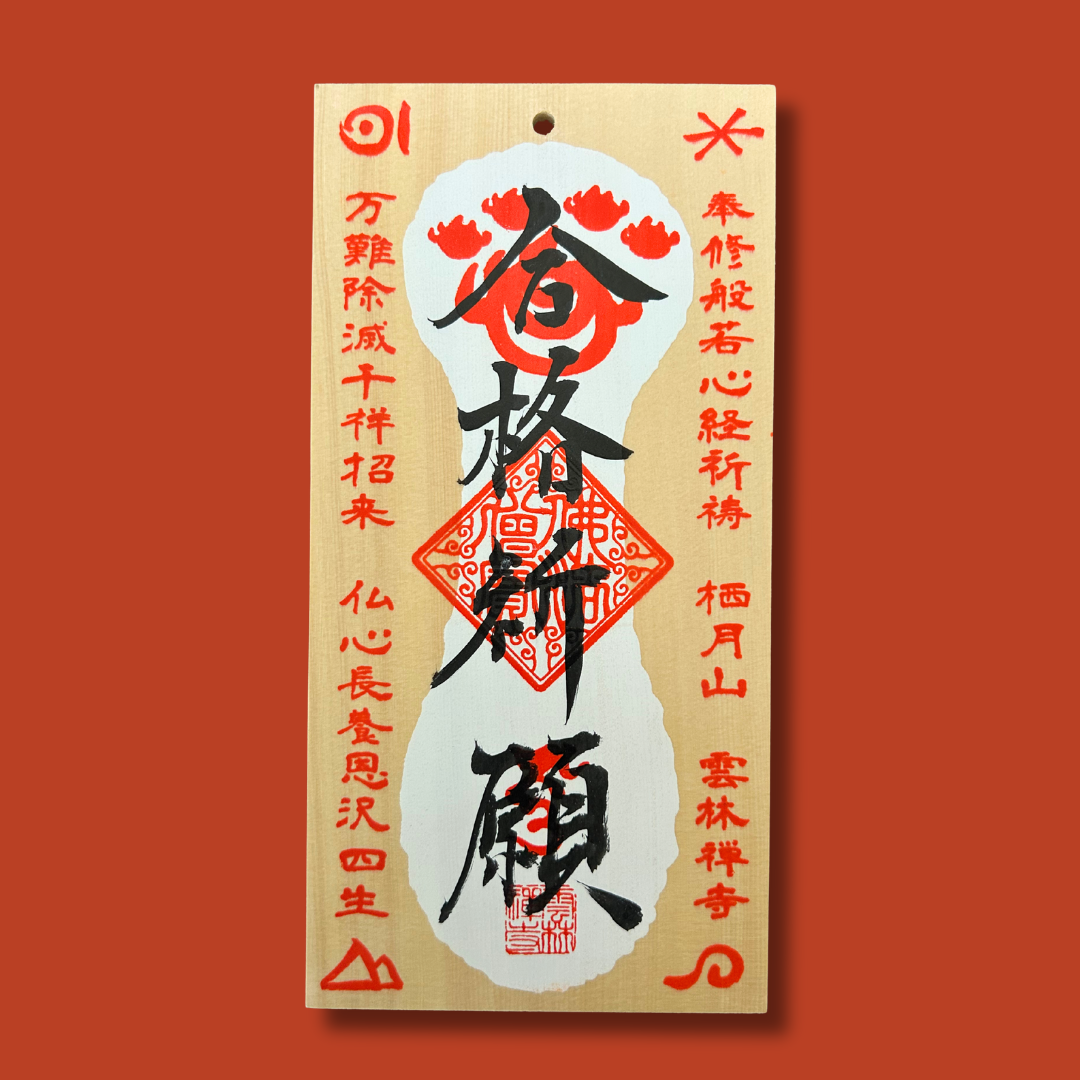 奉修般若心経祈祷 栖月山 雲林禅寺
合格祈願
佛法
僧寳
雲林
禅寺
万難除滅千祥招来 仏心長養恩沢四生